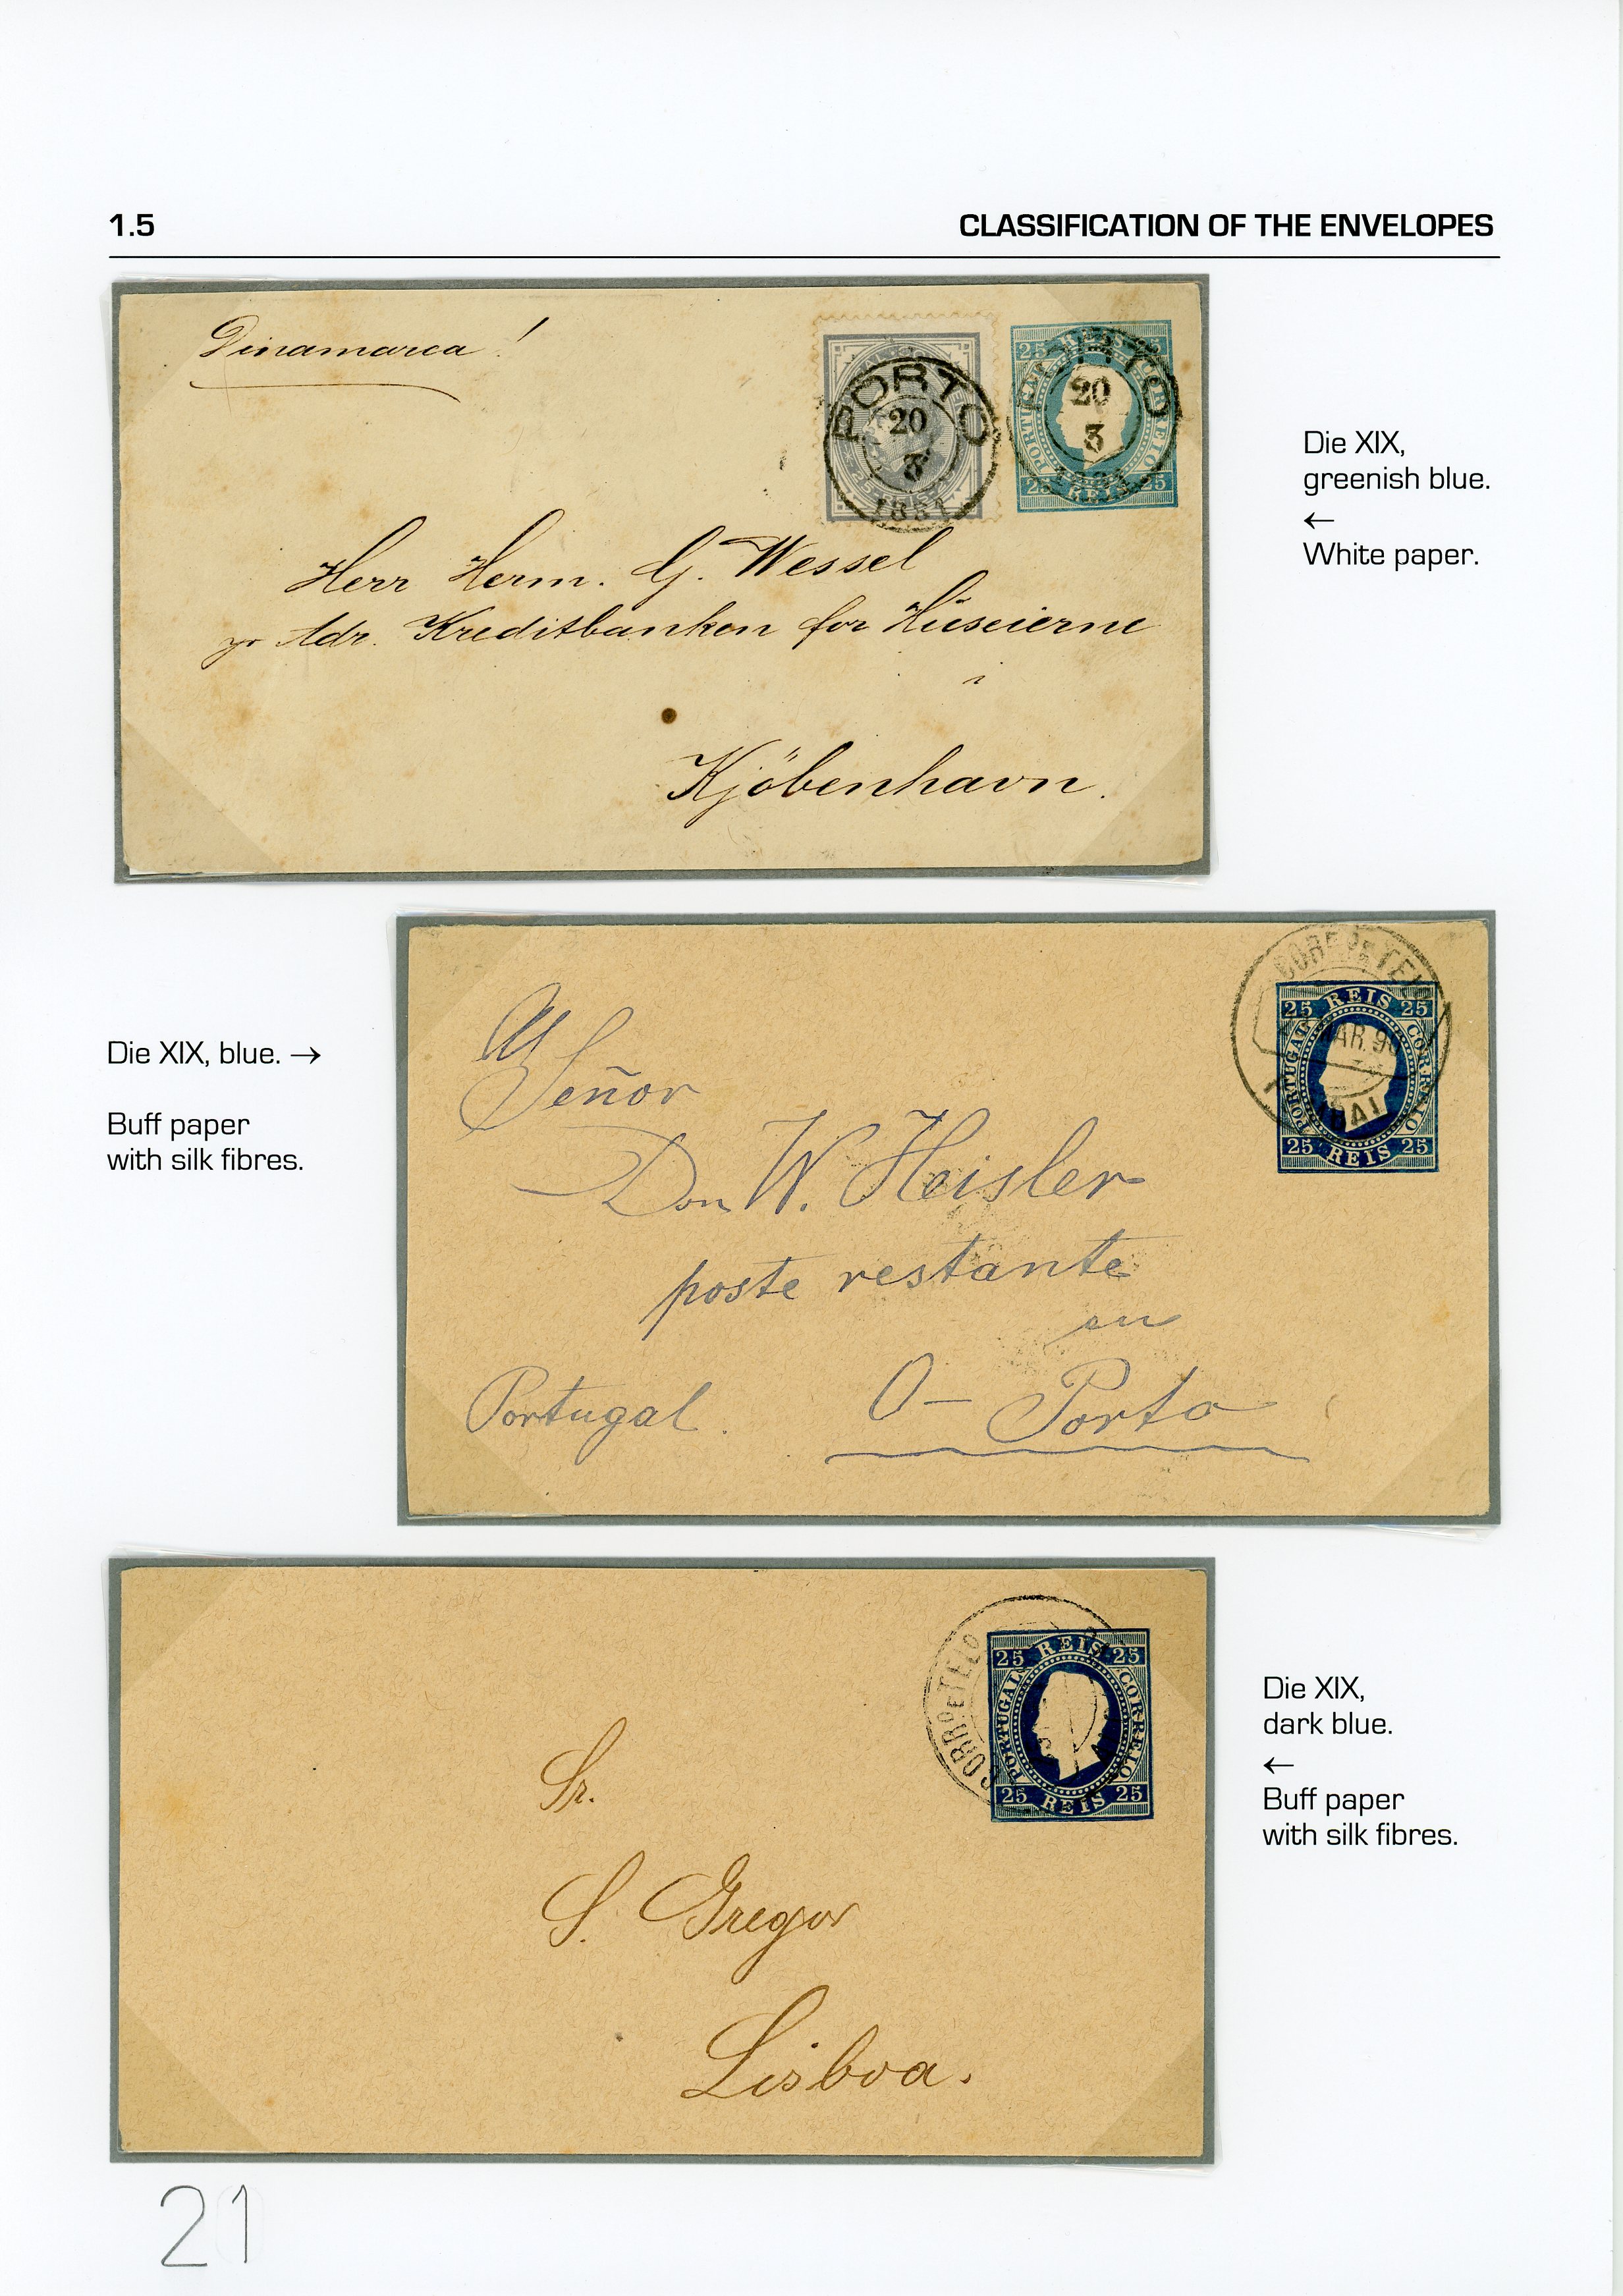 1.5 CLASSIFICATION OF THE ENVELOPES
Dinamarca!
PORTO
20
3
1881
25 REIS 25
PORTUGAL
CORREIO
25 REIS 25
PORTO
20
3
Herr Herm. G. Wessel
Adr. Kreditbanken for Huseierne
i
Kjöbenhavn.
Die XIX,
greenish blue.
←
White paper.
Die XIX, blue. →
Buff paper
with silk fibres.
25 REIS 25
PORTUGAL
CORREIO
25 REIS 25
Señor
Don W. Heisler
poste restante
en
O-Porto
Portugal.
25 REIS 25
PORTUGAL
CORREIO
25 REIS 25
CORRºETELO
Sr.
S. Gregor
Lisboa.
Die XIX,
dark blue.
←
Buff paper
with silk fibres.
21